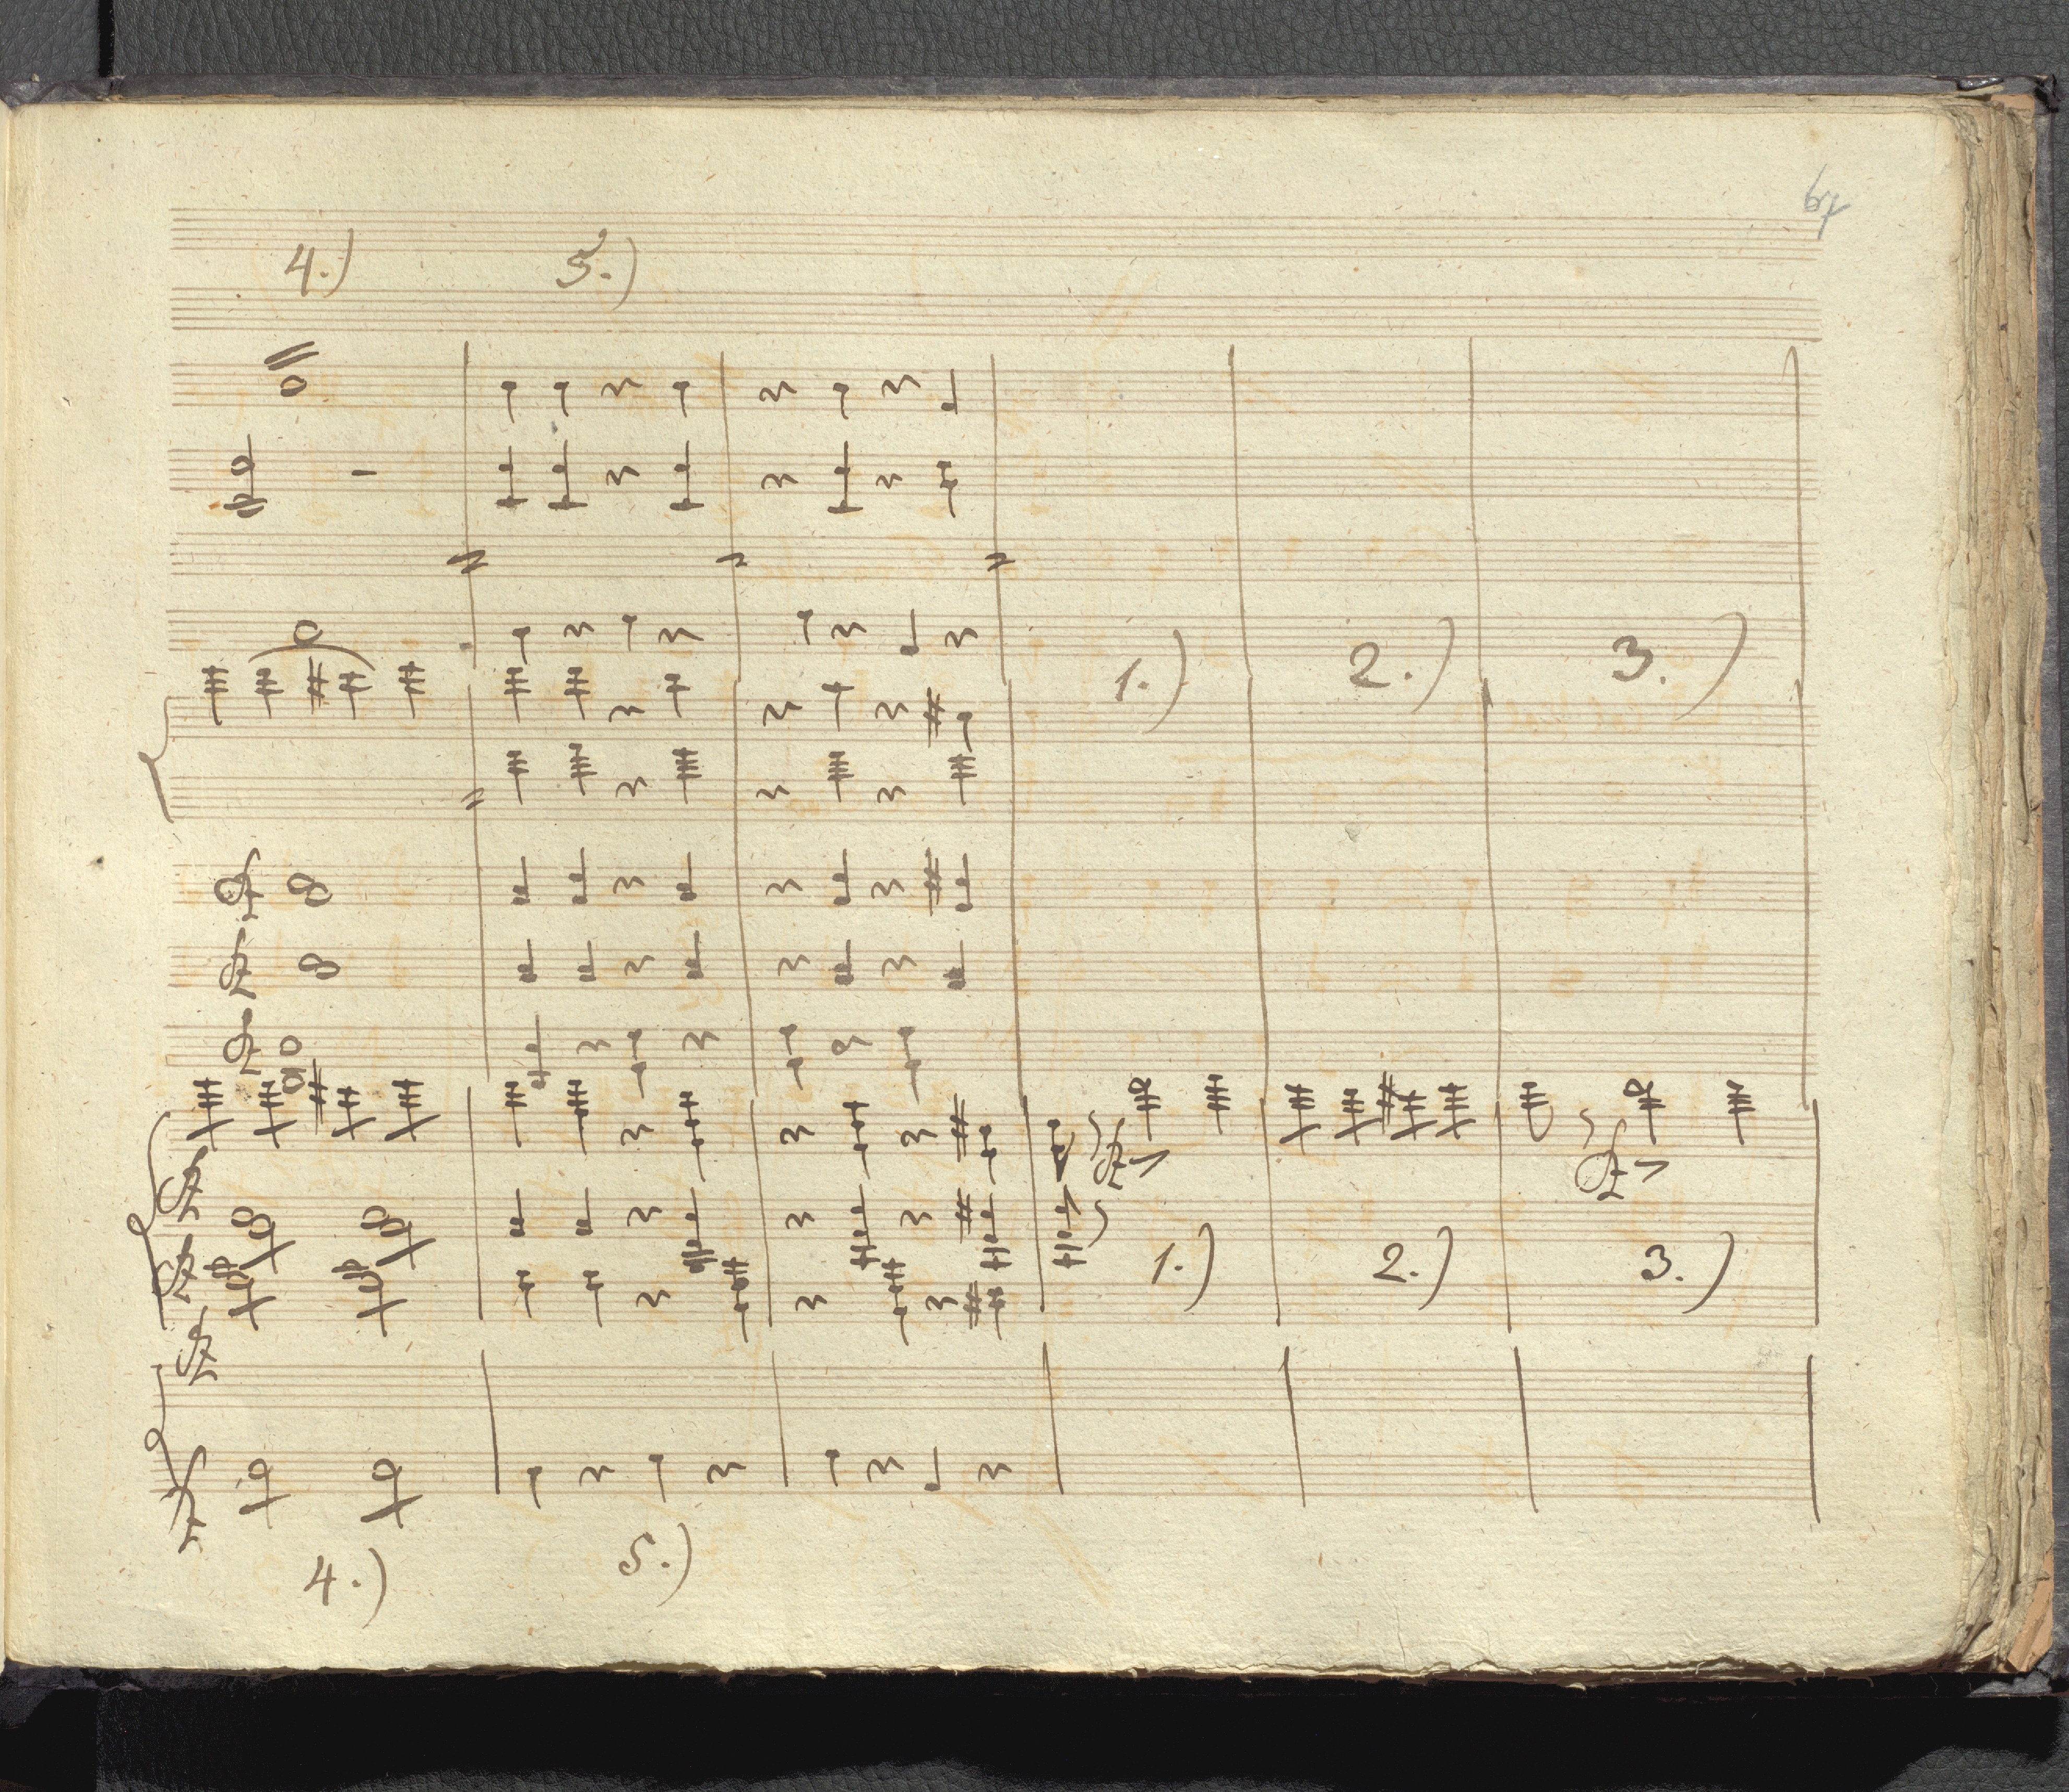 67
4.) 5.)
1.) 2.) 3.)
1.) 2.) 3.)
4.) 5.)